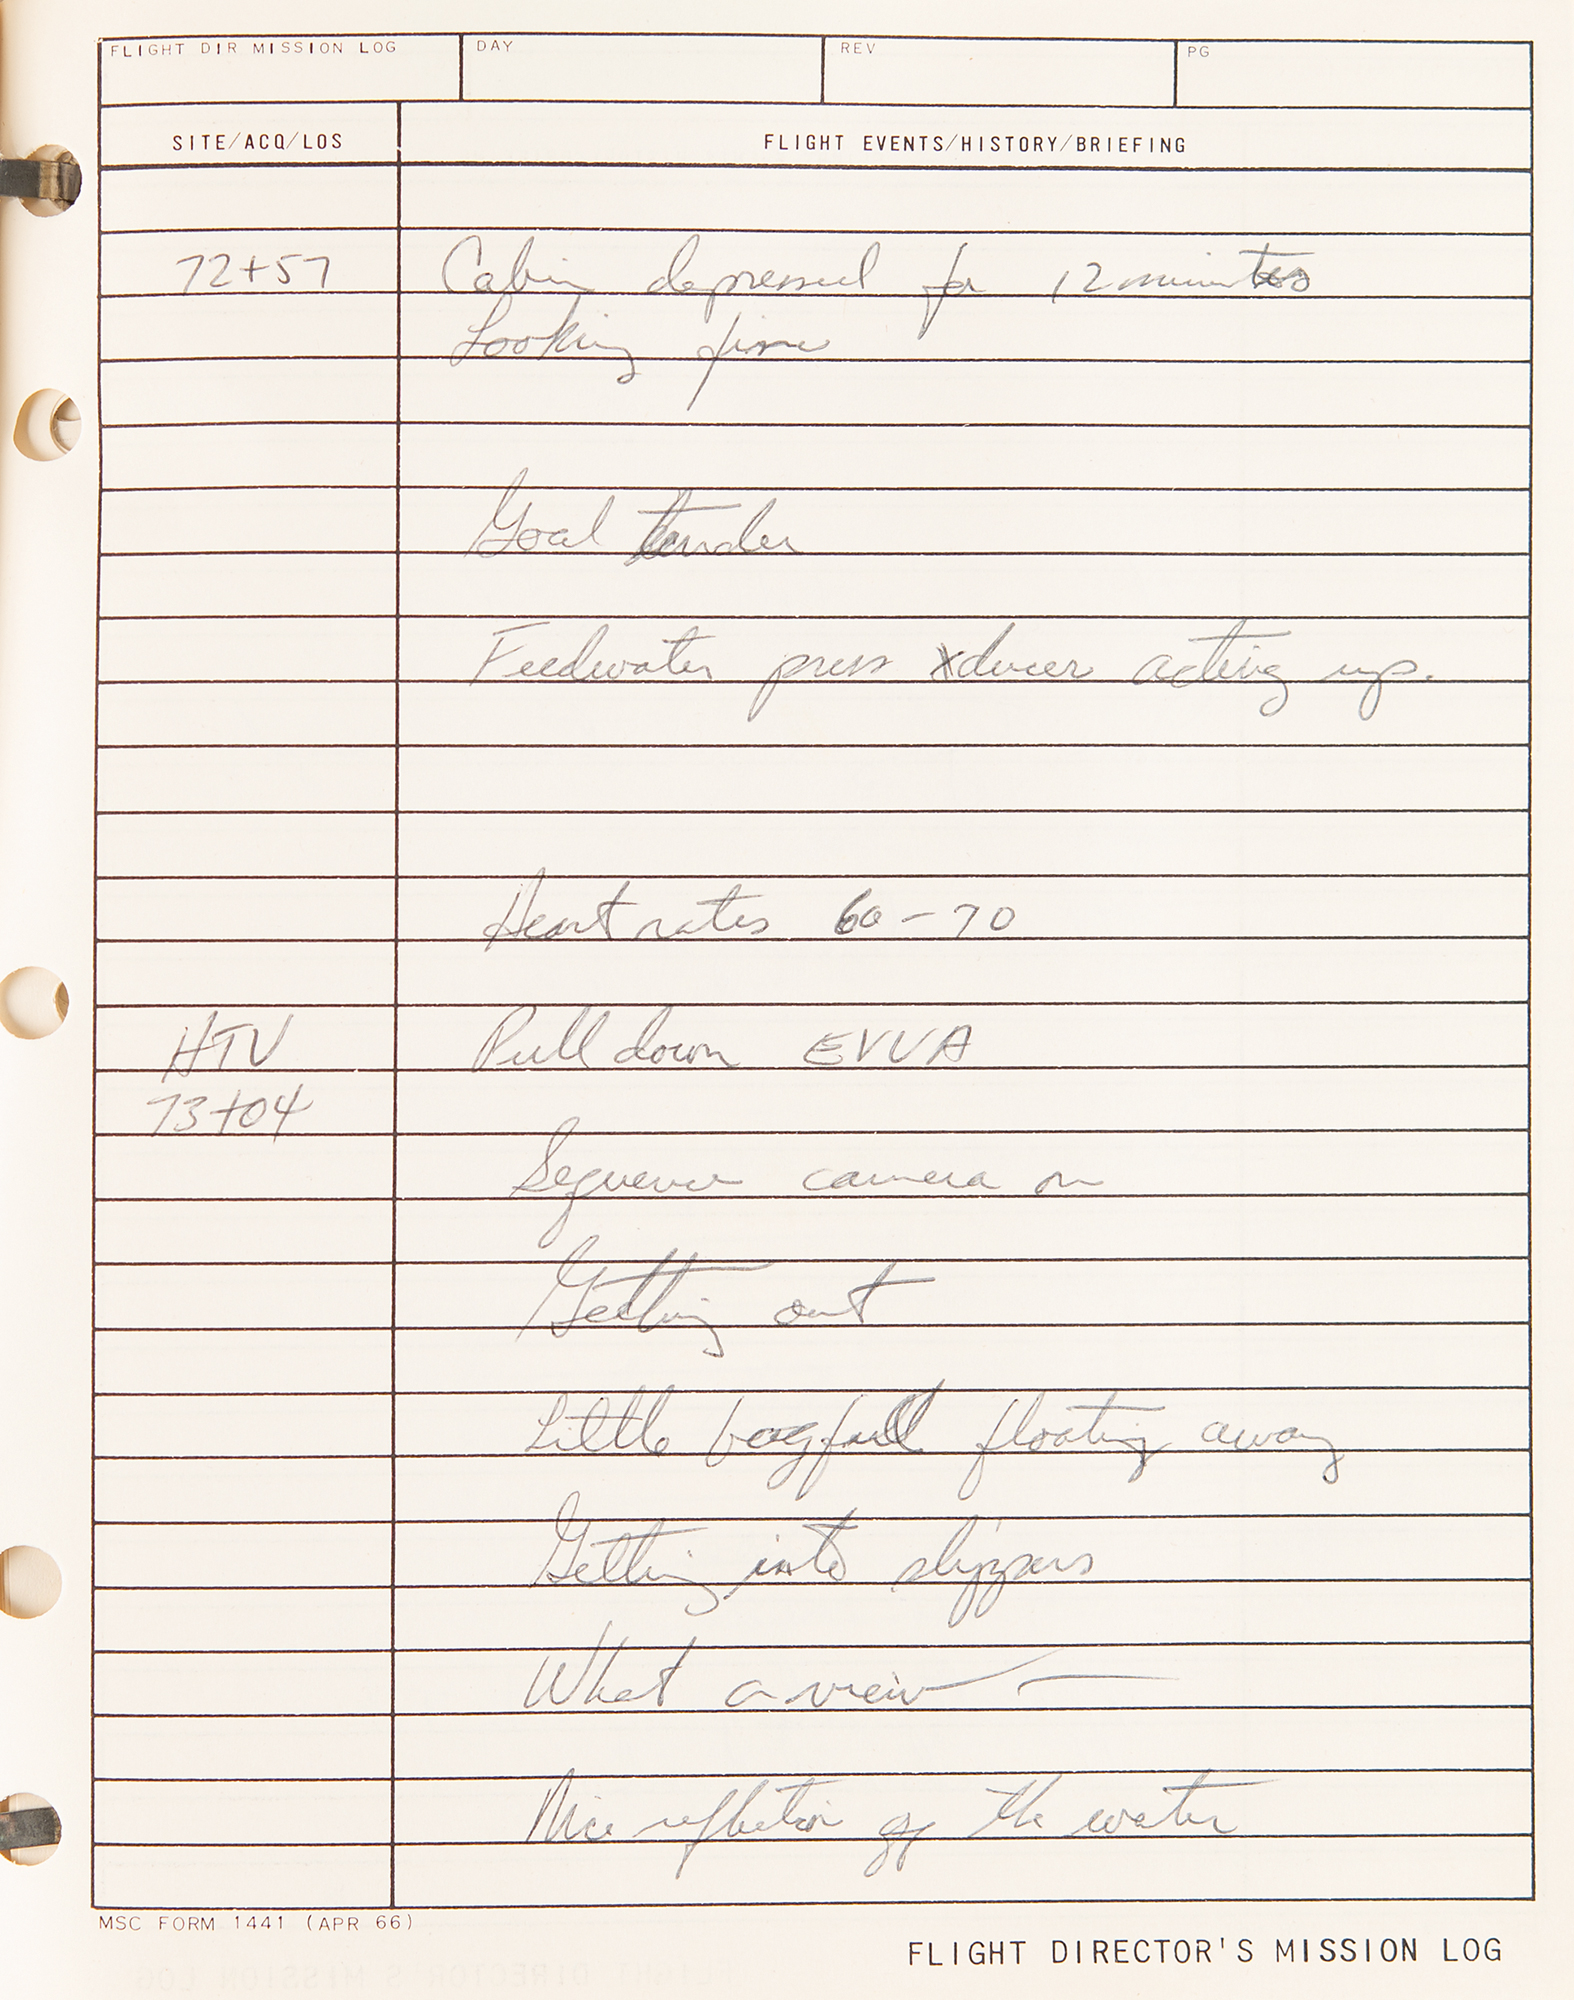 FLIGHT DIR MISSION LOG DAY REV PG
SITE/ACQ/LOS FLIGHT EVENTS/HISTORY/BRIEFING
72+57 Cabin depressed for 12 minutes
Looking fine
Goal tender
Feedwater press xducer acting up.
Heart rates 60-70
HTV Pull down EVVA
73+04
Sequence camera on
Getting out
Little bagfull floating away
Getting into slippers
What a view —
Nice reflection off the water
MSC FORM 1441 (APR 66)
FLIGHT DIRECTOR'S MISSION LOG